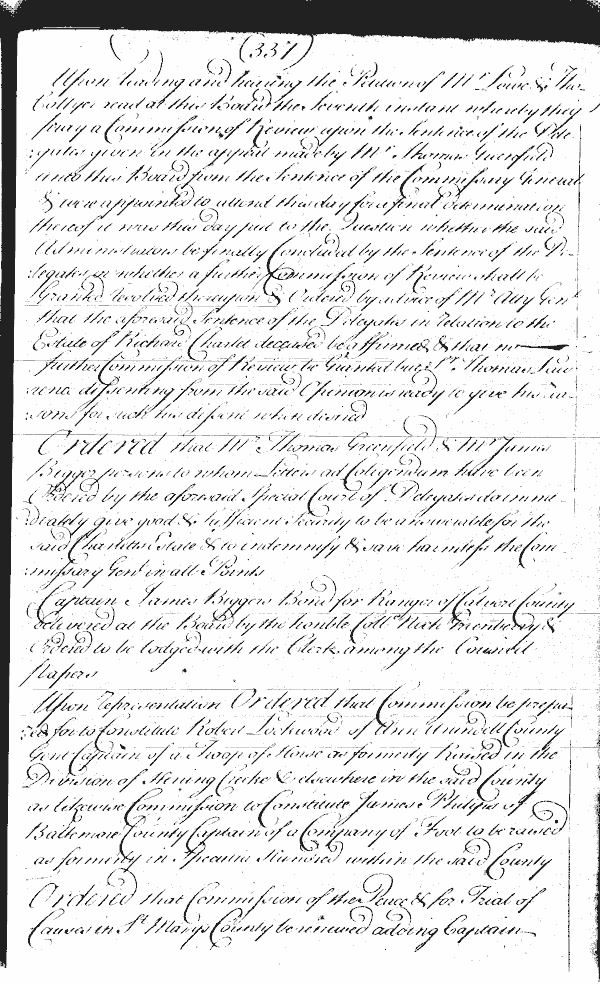 (337)
Upon Reading and hearing the Petition of Mr Lowe & Tho
Collyer read at this Board the Seventh instant whereby they
pray a Commission of Review upon the Sentence of the Dele
gates given in the appeal made by Mr Thomas Greenfield
unto this Board from the Sentence of the Commissary General
& were appointed to attend this day for a final determination
thereof it was this day put to the Question whether the said
Administrators be finally Concluded by the Sentence of the De
legates or whether a further Commission of Review shall be
Granted Resolved thereupon & Ordered by advice of Mr Atty Genl
that the aforesaid Sentence of the Delegates in relation to the
Estate of Richard Charlet deceased be affirmed & that no
further Commission of Review be Granted but Sr Thomas Law
rence dissenting from the said Opinion is ready to give his rea
sons for such his dissent when desired
Ordered that Mr Thomas Greenfield & Mr James
Bigger persons to whom Letters ad Coligendum have been
Ordered by the aforesaid Special Court of Delegates do imme
diately give good & sufficient Security to be answerable for the
said Charletts Estate & to indemnify & save harmless the Com
missary Genl in all Points
Captain James Biggers Bond for Ranger of Calvert County
delivered at the Board by the honble Coll Nich Greenberry &
Ordered to be lodged with the Clerk among the Council
papers
Upon representation Ordered that Commission be prepar
ed for to Constitute Robert Lockwood of Ann Arundell County
Gent Captain of a Troop of Horse as formerly Raised in the
Division of Hering Creeke & elsewhere in the said County
as likewise Commission to Constitute James Phillips of
Baltemore County Captain of a Company of Foot to be raised
as formerly in Specutia Hundred within the said County
Ordered that Commission of the Peace & for Trial of
Causes in St Marys County be renewed adding Captain